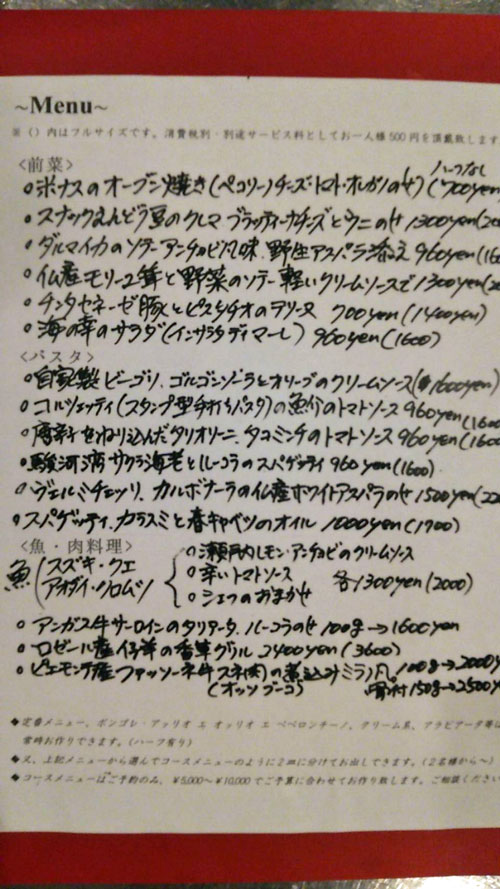 ~Menu~
※()内はフルサイズです。消費税別・別途サービス料としてお一人様500円を頂戴致します
<前菜>
ハーフなし
○ボナスのオーブン焼き(ペコリーノチーズ・トマト・オレガノのせ)(700yen
○スナックえんどう豆のクレマ ブラッティーナチーズとウニのせ 1300yen(20
○ダルマイカのソテーアンチョビ風味、野生アスパラ添え 960yen(16
○仏産モリーユ茸と野菜のソテー軽いクリームソースで1300yen(2
○チンタセネーゼ豚とピスタチオのテリーヌ 700yen(1400yen)
○海の幸のサラダ(インサラタディマーレ) 960yen(1600)
<パスタ>
○自家製ビーゴリ、ゴルゴンゾーラとオリーブのクリームソース(1600yen)
○コルツェッティ(スタンプ型手打ちパスタ)の魚介のトマトソース 960yen(1600
○唐辛子を練り込んだタリオリーニ、タコミンチのトマトソース 960yen(1600
○駿河湾サクラ海老とルーコラのスパゲッティ 960yen(1600)
○ヴェルミチェッリ、カルボナーラの仏産ホワイトアスパラのせ 1500yen(22
○スパゲッティ、カラスミと春キャベツのオイル 1000yen(1700)
<魚・肉料理>
魚(スズキ・クエ
アオダイ・クロムツ
○瀬戸内レモン・アンチョビのクリームソース
○辛いトマトソース
○シェフのおまかせ
各1300yen(2000)
○アンガス牛サーロインのタリアータ、ルーコラのせ 100g→1600yen
○ロゼール産仔羊の香草グリル 2400yen(3600)
○ピエモンテ産ファッソーネ牛スネ(肉)の煮込みミラノ風 100g→2000y
(オッソブーコ) 骨付150g→2500y
◆定番メニュー、ボンゴレ・アッリオ エ オッリオ エ ペペロンチーノ、クリーム系、アラビアータ等は
常時お作りできます。(ハーフ有り)
◆又、上記メニューから選んでコースメニューのように2皿に分けてお出しできます。(2名様から~)
◆コースメニューはご予約のみ、¥5,000~¥10,000でご予算に合わせてお作り致します。ご相談ください